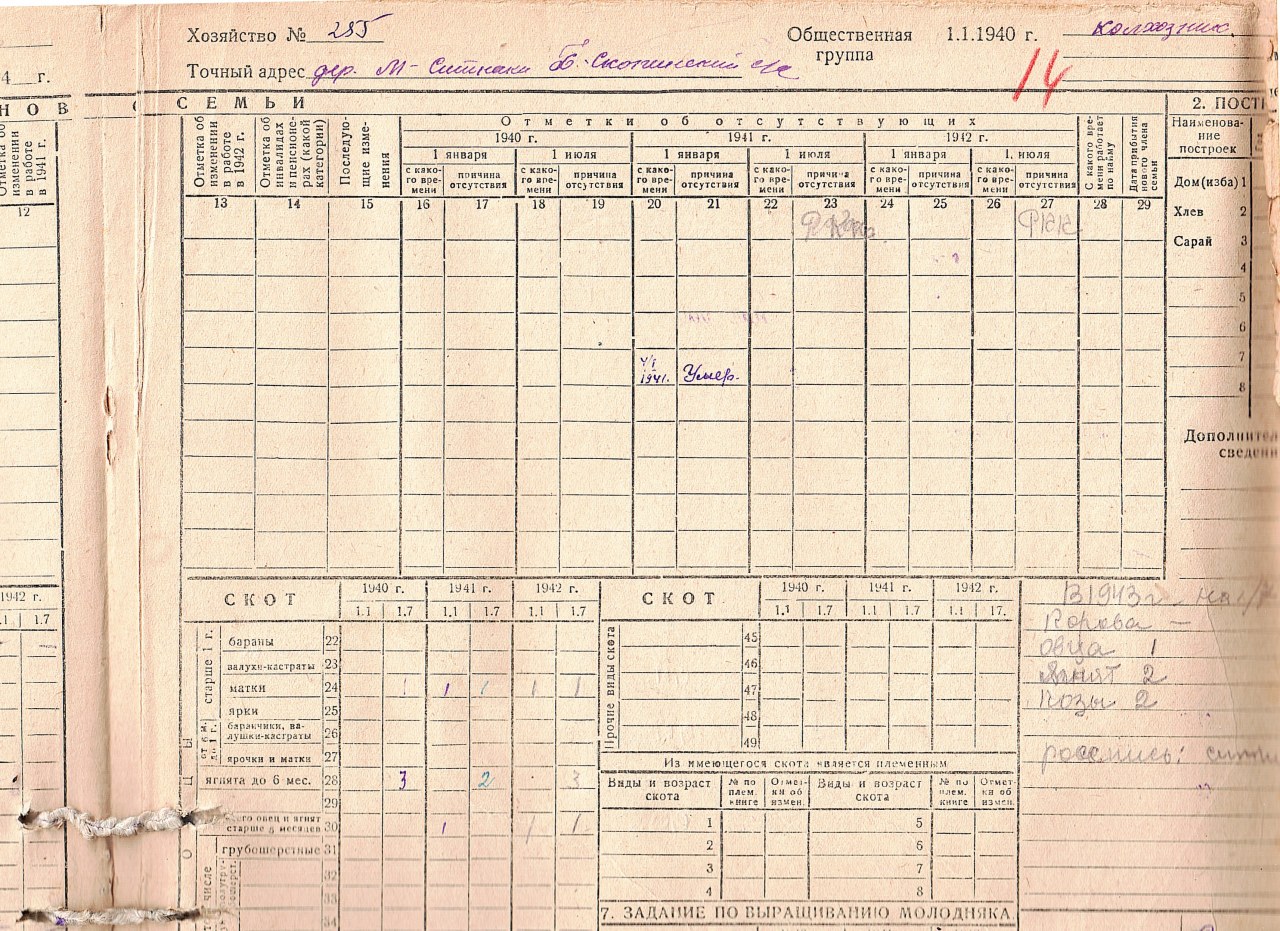 Хозяйство № 285
Общественная группа 1.1.1940 г. колхозник.
4 г.
Точный адрес дер. М-Ситники Б.-Скопинский с/с
14
НОВ СЕМЬИ
2. ПОСТ
Отметка об изменении в работе в 1941 г.
Отметка об изменении в работе в 1942 г.
Отметка об инвалидах и пенсионерах (какой категории)
Последующие изменения
Отметки об отсутствующих
1940 г. 1941 г. 1942 г.
1 января 1 июля 1 января 1 июля 1 января 1. июля
с какого времени причина отсутствия с какого времени причина отсутствия с какого времени причина отсутствия с какого времени причина отсутствия с какого времени причина отсутствия с какого времени причина отсутствия
С какого времени работает по найму
Дата прибытия нового члена семьи
Наименование построек
12 13 14 15 16 17 18 19 20 21 22 23 24 25 26 27 28 29
Дом (изба) 1
Хлев 2
Сарай 3
4
5
6
7
8
РККА
4/I 1941. Умер.
Дополнител
сведени
1942 г.
1.1 1.7
СКОТ 1940 г. 1941 г. 1942 г.
1.1 1.7 1.1 1.7 1.1 1.7
старше 1 г.
бараны 22
валухи-кастраты 23
матки 24 1 1 1 1 1
ярки 25
от 6 м. до 1 г.
баранчики, валушки-кастраты 26
ярочки и матки 27
ягнята до 6 мес. 28 3 2 3
29
его овец и ягнят старше 6 месяцев 30 1 1 1
грубошерстные 31
32
33
34
СКОТ 1940 г. 1941 г. 1942 г.
1.1 1.7 1.1 1.7 1.1 17.
Прочие виды скота
45
46
47
48
49
Из имеющегося скота является племенным
Виды и возраст скота № по плем. книге Отметки об измен. Виды и возраст скота № по плем. книге Отметки об измен.
1 5
2 6
3 7
4 8
7. ЗАДАНИЕ ПО ВЫРАЩИВАНИЮ МОЛОДНЯКА.
В 1943 г.
Корова —
овца 1
ягнят 2
козы 2
роспись: